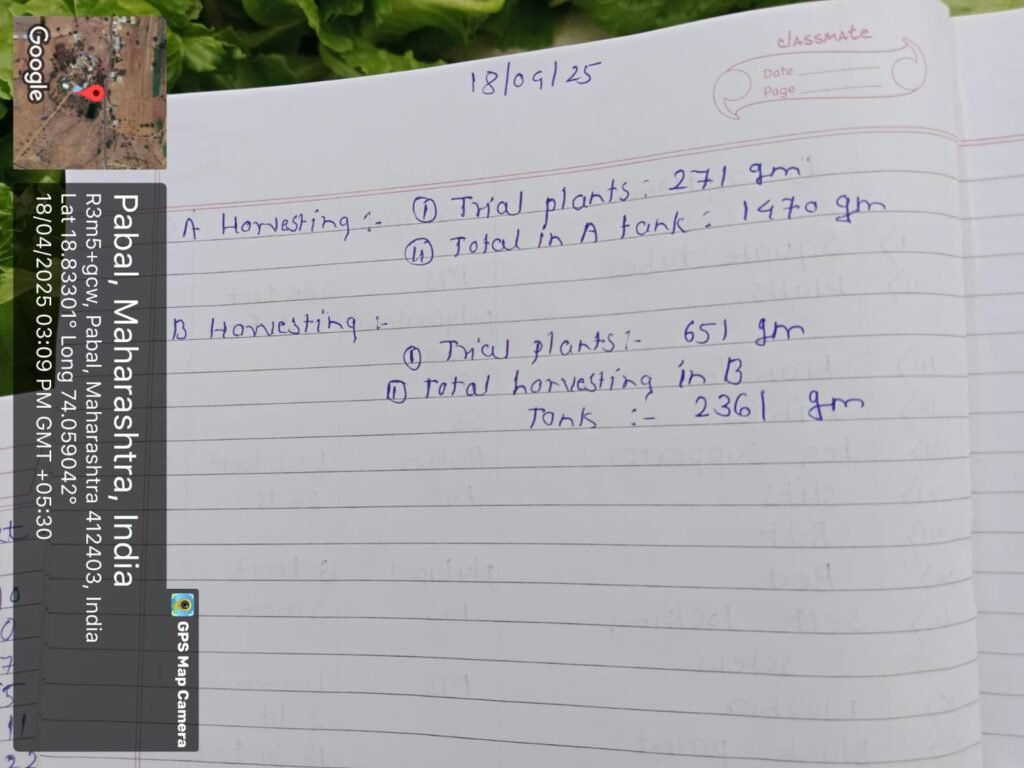 18/04/25
classmate
Date
Page
A Harvesting :- ① Trial plants : 271 gm
② Total in A tank : 1470 gm
B Harvesting :-
① Trial plants :- 651 gm
② Total harvesting in B
Tank :- 2361 gm
Google
Pabal, Maharashtra, India
R3m5+gcw, Pabal, Maharashtra 412403, India
Lat 18.83301° Long 74.059042°
18/04/2025 03:09 PM GMT +05:30
GPS Map Camera